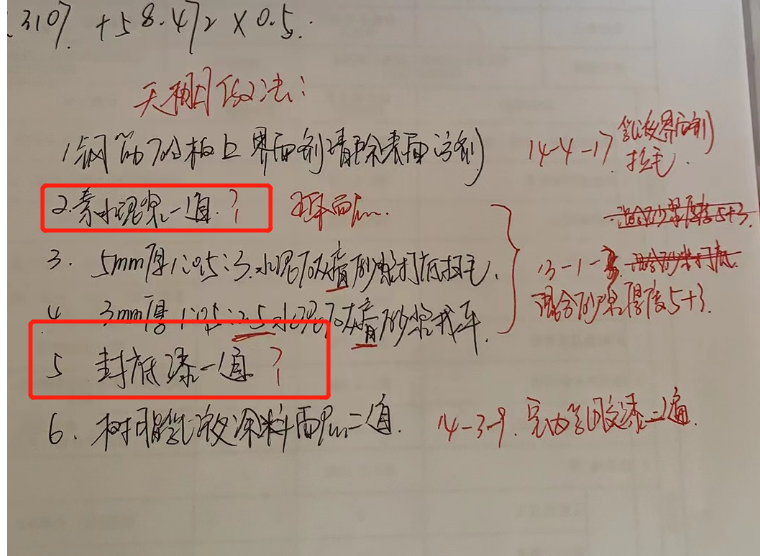 3107 +58.472×0.5.
天棚做法:
1.钢筋砼板上界面剂清除表面污剂
14-4-17 乳液界面剂
拉毛.
2.素水泥浆一道?
3. 5mm厚1:0.5:3水泥石膏砂浆打底扫毛.
13-1-3
混合砂浆厚度5+3.
4. 3mm厚1:0.5:2.5水泥石膏砂浆找平
5 封底漆一道?
6. 树脂乳液涂料面层二道.
14-3-9. 室内乳胶漆二遍.